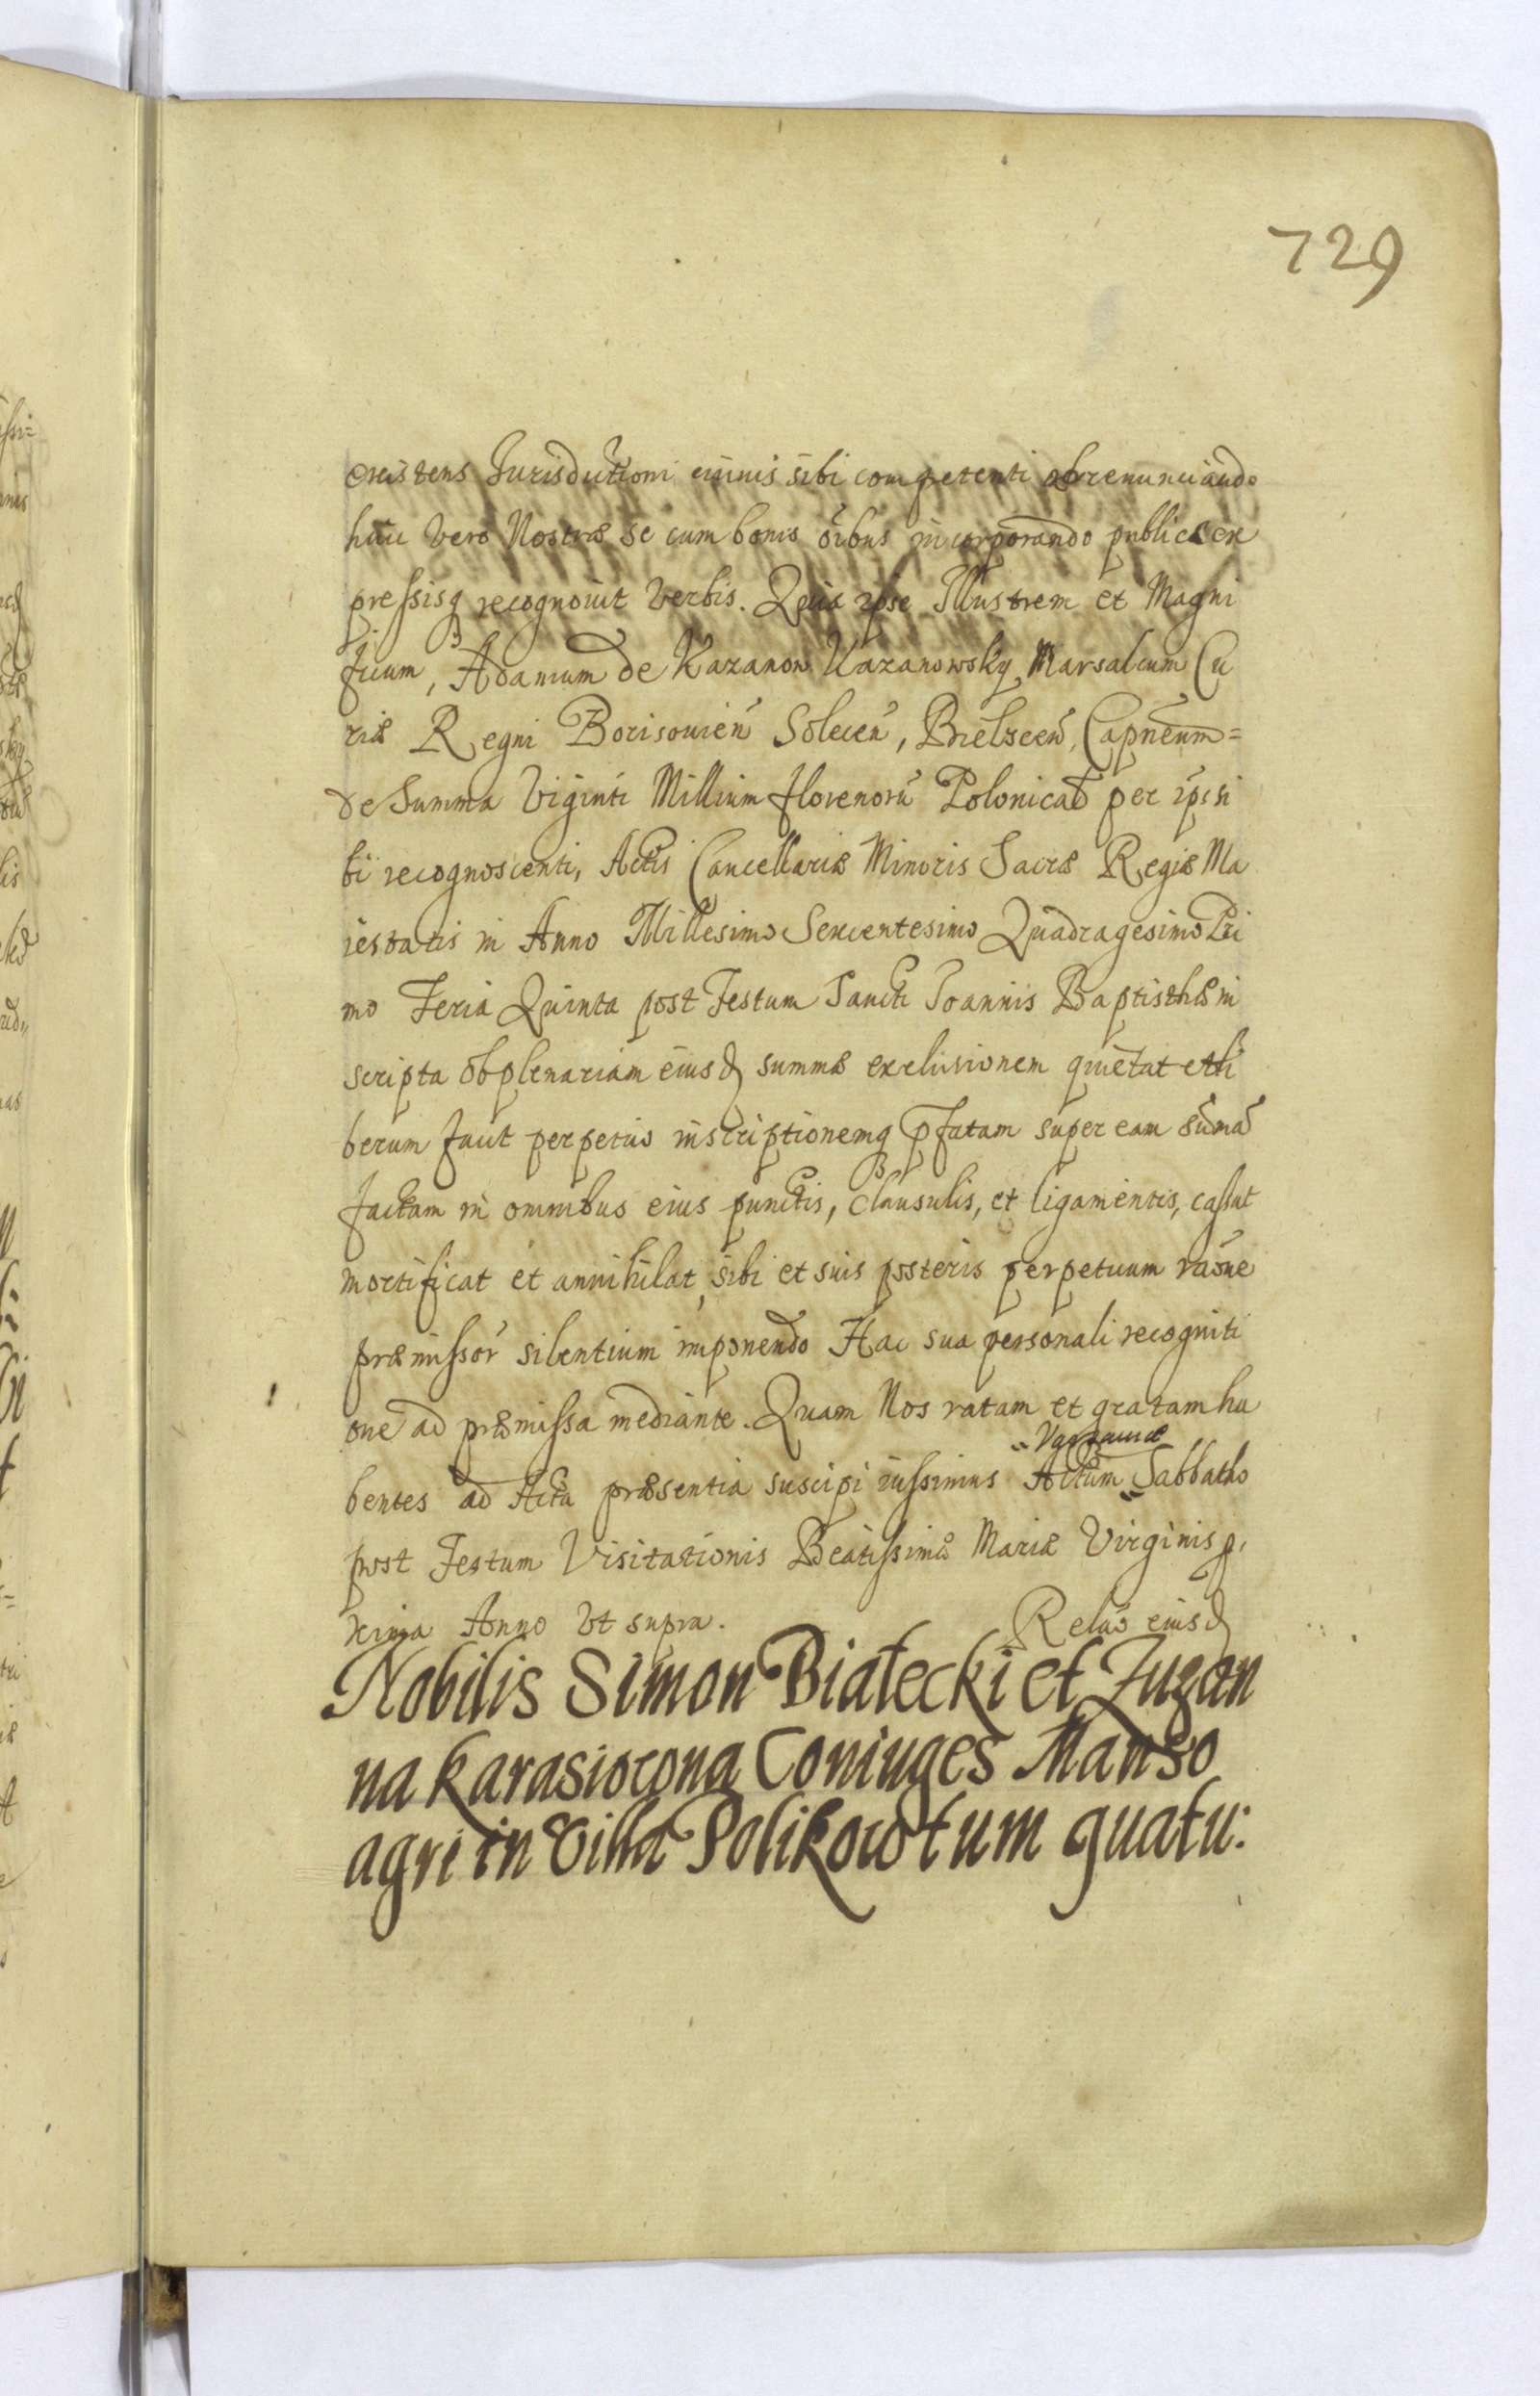 729
existens Jurisdictioni cuiuis sibi competenti obrenunciando
huic vero Nostræ se cum bonis oĩbus incorporando publice ex
pressisq recognouit verbis. Quia ipse Illustrem et Magni
ficum, Adamum de Kazanow Kazanowsky Marsalcum Cu
riæ Regni Borisouień Soleceń, Bielsceń, Capneum=
de Summa Viginti Millium florenorũ Polonical per ip̃si
bi recognoscenti, Actis Cancellariæ Minoris Sacræ Regiæ Ma
iestatis in Anno Millesimo Sexcentesimo Quadragesimo Pri
mo Feria Quinta post Festum Sancti Joannis Baptisthæ in
scripta ob plenariam eiusd summæ exolusionem quietat et li
berum facit perpetuo inscriptionemq p̃fatam super eam sum̃a
factam in omnibus eius punctis, clausulis, et ligamentis, cassat
mortificat et annihilat, sibi et suis posteris perpetuum raõne
præmissor̃ silentium imponendo Hac sua personali recogniti
one ad præmissa mediante. Quam Nos ratam et gratam ha
bentes ad Acta præsentia suscipi iussimus Actum Sabbatho
post Festum Visitationis Beatissimæ Mariæ Virginis p̃
xima Anno Vt supra. Relaõ eiusd
Nobilis Simon Białecki et Zuzan
na Karasiowna Coniuges Manso
agri in Villa Polikow tum quatu: